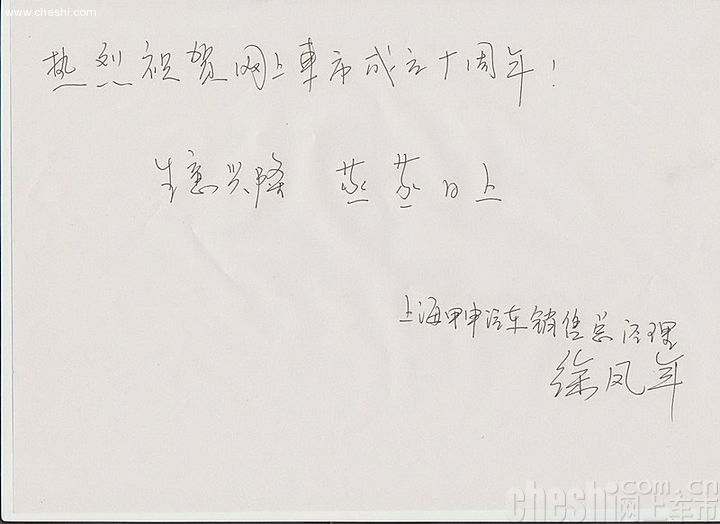 www.cheshi.com
热烈祝贺网上車市成立十周年！
生意兴隆 蒸蒸日上
上海甲申汽车销售总经理
徐凤年
cheshi.com.cn
网上车市